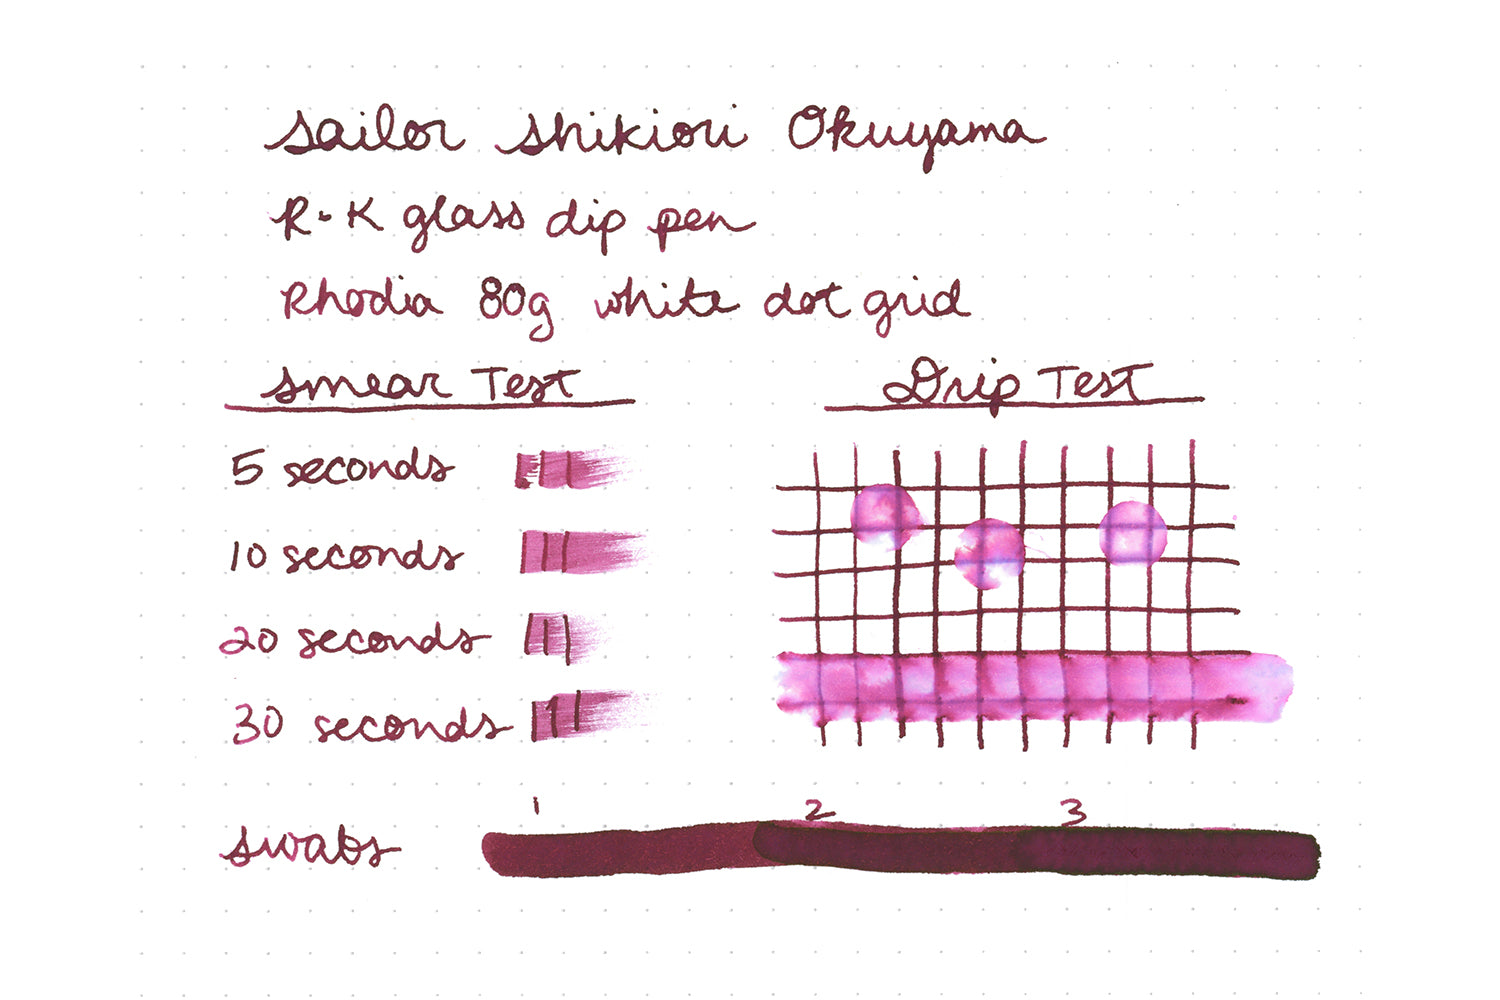 Sailor Shikiori Okuyama
R·K glass dip pen
Rhodia 80g white dot grid
Smear Test
5 seconds
10 seconds
20 seconds
30 seconds
Drip Test
Swabs 1 2 3